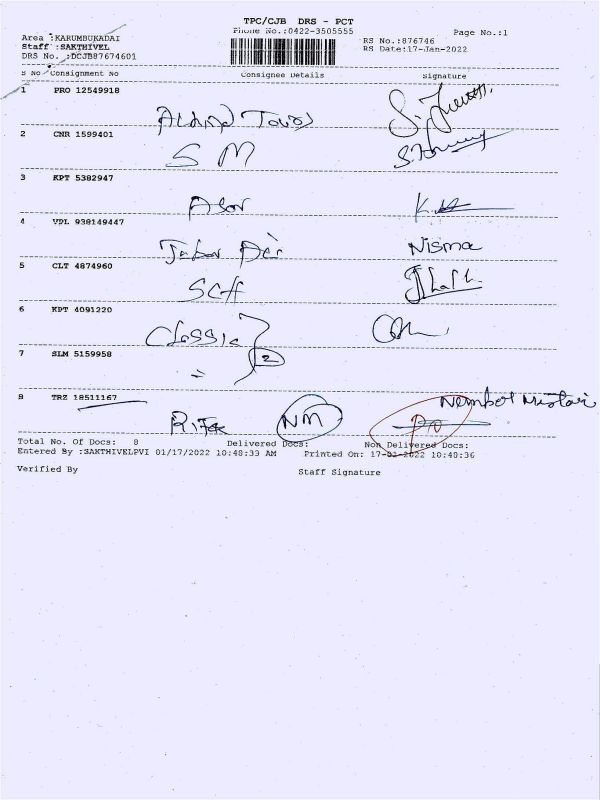 TPC/CJB DRS - PCT
Phone No.:0422-3505555
Page No.:1
Area :KARUMBUKADAI
Staff :SAKTHIVEL
DRS No. :DCJB87674601
RS No.:876746
RS Date:17-Jan-2022
S No Consignment No Consignee Details Signature
1 PRO 12549918
Tours
2 CNR 1599401
S M
3 KPT 5382947
4 VPL 938149447
Nisma
5 CLT 4874960
6 KPT 4091220
Classic
2
7 SLM 5159958
8 TRZ 18511167
NM
Total No. Of Docs: 8 Delivered Docs: Non Delivered Docs:
Entered By :SAKTHIVELPVI 01/17/2022 10:48:33 AM Printed On: 17-01-2022 10:48:36
Verified By Staff Signature